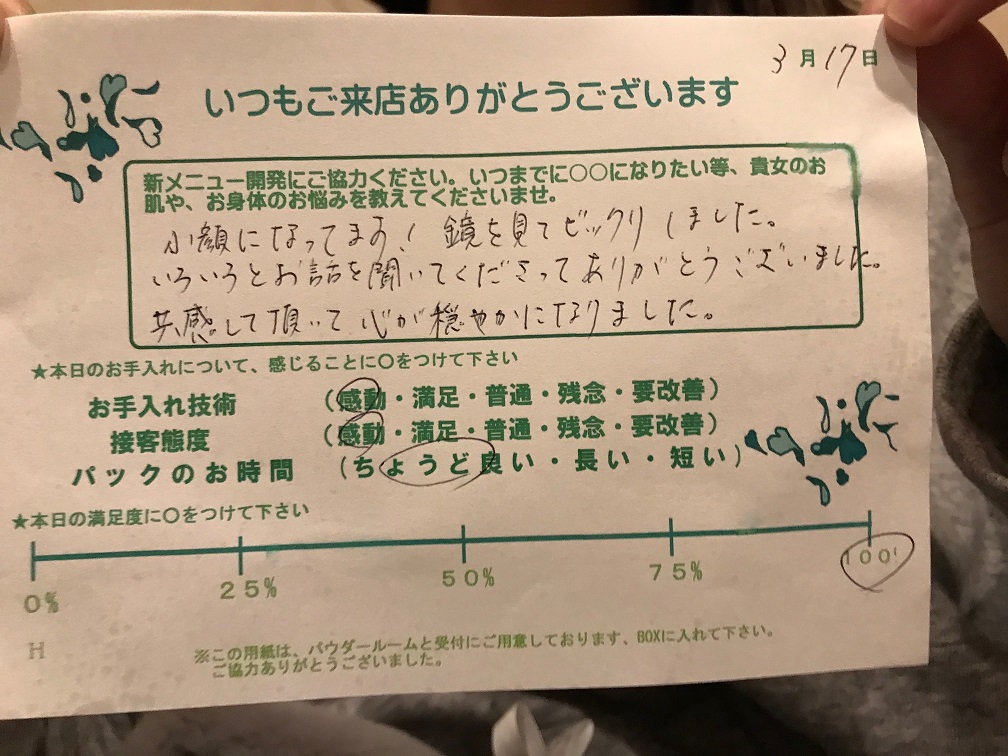 3月17日
いつもご来店ありがとうございます
新メニュー開発にご協力ください。いつまでに○○になりたい等、貴女のお
肌や、お身体のお悩みを教えてくださいませ。
小顔になってます！鏡を見てビックリしました。
いろいろとお話を聞いてくださってありがとうございました。
共感して頂いて心が穏やかになりました。
★本日のお手入れについて、感じることに○をつけて下さい
お手入れ技術 （感動・満足・普通・残念・要改善）
接客態度 （感動・満足・普通・残念・要改善）
パックのお時間 （ちょうど良い・長い・短い）
★本日の満足度に○をつけて下さい
0% 25% 50% 75% 100%
H
※この用紙は、パウダールームと受付にご用意しております、BOXに入れて下さい。
ご協力ありがとうございました。